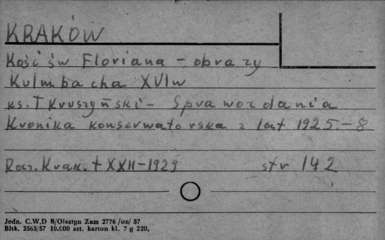 KRAKÓW
Kość św Floriana - obrazy
Kulmbacha XVIw
ks. T Kruszyński - Sprawozdania
Kronika konserwatorska z lat 1925-8
Rocz. Krak. t XXII-1929 str 142
Jedn. C.W.D R/Olsztyn Zam 2776 /oz/ 57
Bltk. 2563/57 10.000 szt. karton kl. 7 g 220.